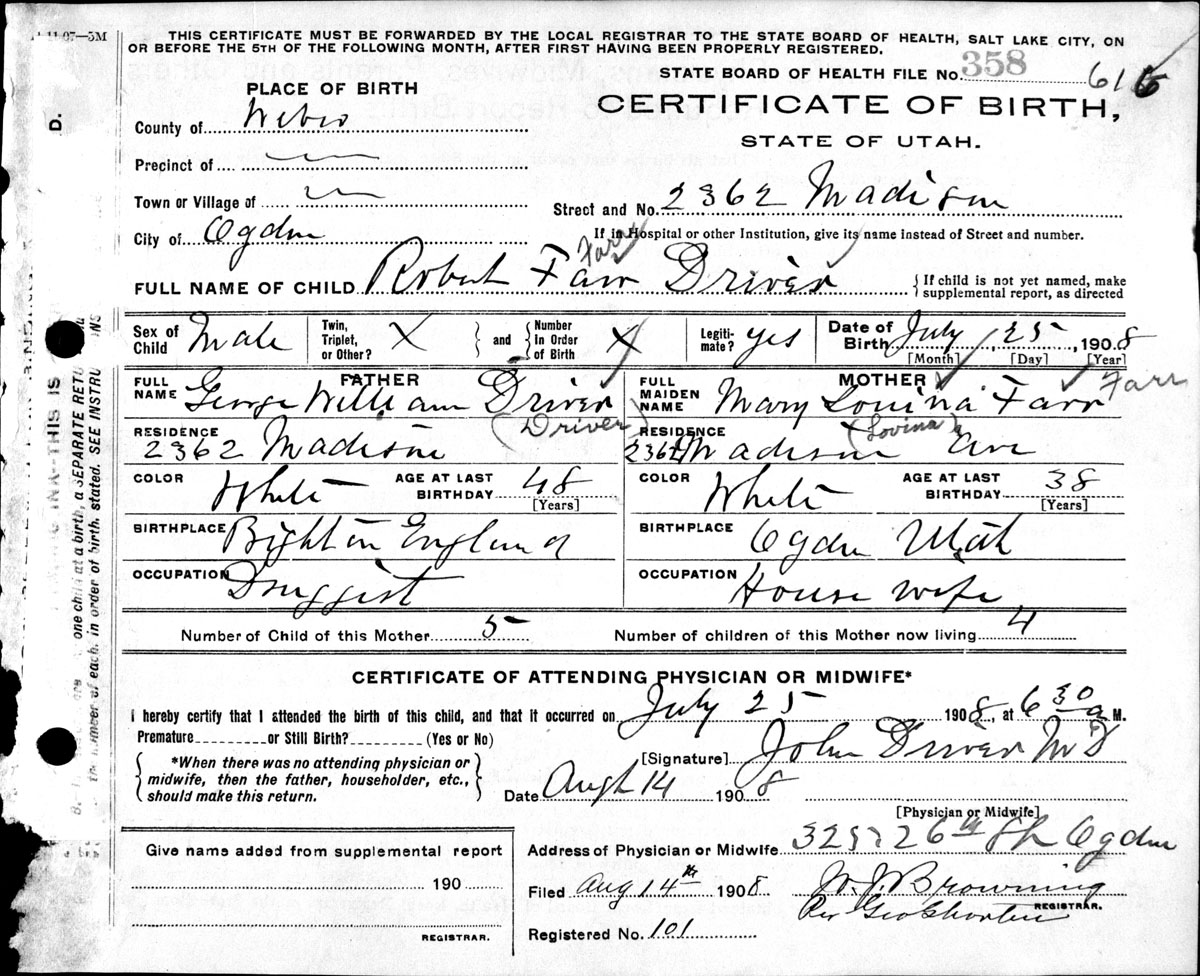 11-07—5M
THIS CERTIFICATE MUST BE FORWARDED BY THE LOCAL REGISTRAR TO THE STATE BOARD OF HEALTH, SALT LAKE CITY, ON
OR BEFORE THE 5TH OF THE FOLLOWING MONTH, AFTER FIRST HAVING BEEN PROPERLY REGISTERED.
STATE BOARD OF HEALTH FILE No. 358 616
PLACE OF BIRTH
CERTIFICATE OF BIRTH,
STATE OF UTAH.
County of Weber
Precinct of
Town or Village of
Street and No. 2362 Madison
City of Ogden
If in Hospital or other Institution, give its name instead of Street and number.
Farr
FULL NAME OF CHILD Robert Farr Driver { If child is not yet named, make
supplemental report, as directed
Sex of Child Male Twin, Triplet, or Other? X } and { Number In Order of Birth X Legiti- mate? yes Date of Birth July 25, 1908
[Month] [Day] [Year]
FATHER MOTHER
FULL NAME George William Driver FULL MAIDEN NAME Mary Louina Farr Farr
(Driver) (Lovina)
RESIDENCE 2362 Madison RESIDENCE 2362 Madison Ave
COLOR White AGE AT LAST BIRTHDAY 48 [Years] COLOR White AGE AT LAST BIRTHDAY 38 [Years]
BIRTHPLACE Bighton England BIRTHPLACE Ogden Utah
OCCUPATION Druggist OCCUPATION House wife
Number of Child of this Mother 5 Number of children of this Mother now living 4
CERTIFICATE OF ATTENDING PHYSICIAN OR MIDWIFE*
I hereby certify that I attended the birth of this child, and that it occurred on July 25 1908, at 6 30 a M.
Premature or Still Birth? (Yes or No)
[Signature] John Driver MD
*When there was no attending physician or
midwife, then the father, householder, etc.,
should make this return.
Date Augh 14 1908
[Physician or Midwife]
Address of Physician or Midwife 26th Ogden
Give name added from supplemental report
190
REGISTRAR.
Filed Aug 14th 1908 W. J. Browning
REGISTRAR.
Per Geo
Registered No. 101
D.
THIS IS
one child at a birth, a SEPARATE RETU
number of each, in order of birth, stated. SEE INSTRU